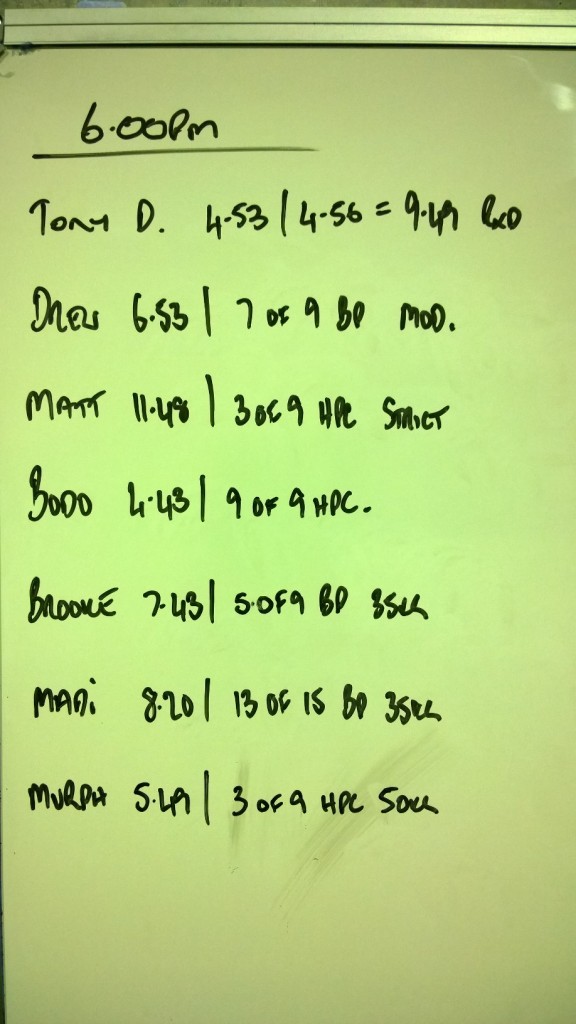 6.00PM
TONY D. 4.53 | 4.56 = 9.49 RXD
DREW 6.53 | 7 OF 9 BP MOD.
MATT 11.48 | 3 OF 9 HPC STRICT
BODO 4.43 | 9 OF 9 HPC.
BROOKE 7.43 | 5.OF 9 BP 35KG
MADi 8.20 | 13 OF 15 BP 35KG
MURPH 5.49 | 3 OF 9 HPC 50KG